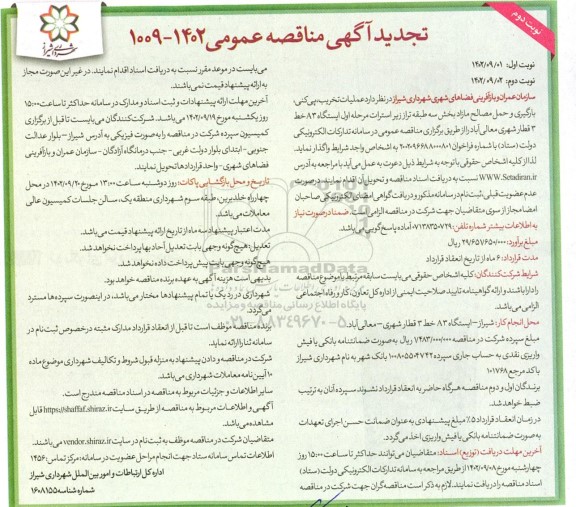 تجدید آگهی مناقصه عمومی ۱۴۰۲-۱۰۰۹
نوبت دوم
شهرداری شیراز
نوبت اول: ۱۴۰۲/۰۹/۰۱
نوبت دوم: ۱۴۰۲/۰۹/۰۲
سازمان عمران و بازآفرینی فضاهای شهری شهرداری شیراز در نظر دارد عملیات تخریب، پی‌کنی،
بارگیری و حمل مصالح مازاد بخش سه طبقه تراز زیر استرات مرحله اول ایستگاه A۳ خط
۳ قطار شهری معالی‌آباد را از طریق برگزاری مناقصه عمومی در سامانه تدارکات الکترونیکی
دولت (ستاد) با شماره فراخوان به اشخاص واجد شرایط واگذار نماید.
لذا از کلیه اشخاص حقوقی با توجه به شرایط ذیل دعوت به عمل می‌آید با مراجعه به آدرس
WWW.Setadiran.ir نسبت به دریافت اسناد مناقصه و تحویل آن اقدام نمایند. در صورت
عدم عضویت قبلی، ثبت‌نام در سامانه مذکور و دریافت گواهی امضای الکترونیکی صاحبان
امضا مجاز از سوی متقاضیان جهت شرکت در مناقصه الزامی است. ضمنا در صورت نیاز
به اطلاعات بیشتر شماره تلفن: ۰۷۱۳۸۳۵۰۷۲۹ آماده پاسخ‌گویی می‌باشد.
مبلغ برآورد: ریال
مدت قرارداد: ۶ ماه از تاریخ انعقاد قرارداد
شرایط شرکت‌کنندگان: کلیه اشخاص حقوقی می‌بایست سابقه مرتبط با موضوع مناقصه
را دارا باشند و ارائه گواهینامه تایید صلاحیت ایمنی از اداره کل تعاون، کار و رفاه اجتماعی
الزامی می‌باشد.
محل انجام کار: شیراز – ایستگاه A۳ خط ۳ قطار شهری – معالی‌آباد
مبلغ سپرده شرکت در مناقصه ۷/۴۸۳/۰۰۰/۰۰۰ ریال به صورت ضمانتنامه بانکی یا فیش
واریزی نقدی به حساب جاری سپرده ۱۰۰۸۰۵۵۰۴۷۴۲ بانک شهر به نام شهرداری شیراز
با کد مرجع ۱۰۱۷۶۸
برندگان اول و دوم مناقصه هرگاه حاضر به انعقاد قرارداد نشوند سپرده آنان به ترتیب
ضبط خواهد شد.
در زمان انعقاد قرارداد ۵٪ مبلغ پیشنهادی به عنوان ضمانت حسن اجرای تعهدات
به صورت ضمانتنامه بانکی یا فیش واریزی اخذ می‌گردد.
آخرین مهلت دریافت (توزیع) اسناد: متقاضیان می‌توانند حداکثر تا ساعت ۱۵:۰۰ روز
چهارشنبه مورخ ۱۴۰۲/۰۹/۰۸ از طریق مراجعه به سامانه تدارکات الکترونیکی دولت (ستاد)
اسناد مناقصه را دریافت نمایند. لازم به ذکر است مناقصه‌گران جهت شرکت در مناقصه
می‌بایست در موعد مقرر نسبت به دریافت اسناد اقدام نمایند. در غیر این صورت مجاز
به ارائه پیشنهاد قیمت نمی‌باشند.
آخرین مهلت ارائه پیشنهادات و ثبت اسناد و مدارک در سامانه حداکثر تا ساعت ۱۵:۰۰
روز یکشنبه مورخ ۱۴۰۲/۰۹/۱۹ می‌باشد. شرکت‌کنندگان می‌بایست تا قبل از برگزاری
کمیسیون سپرده شرکت در مناقصه را به صورت فیزیکی به آدرس شیراز – بلوار عدالت
جنوبی – ابتدای بلوار دولت غربی – جنب درمانگاه آزادگان – سازمان عمران و بازآفرینی
فضاهای شهری – واحد قراردادها تحویل نمایند.
تاریخ و محل بازگشایی پاکات: روز دوشنبه ساعت ۱۳:۰۰ مورخ ۱۴۰۲/۰۹/۲۰ در محل
چهارراه خلدبرین، طبقه سوم شهرداری منطقه یک، سالن جلسات کمیسیون عالی
معاملات می‌باشد.
مدت اعتبار پیشنهاد سه ماه از تاریخ ارائه پیشنهاد قیمت می‌باشد.
تعدیل: هیچ‌گونه وجهی بابت تعدیل آحاد بها پرداخت نخواهد شد.
هیچ‌گونه وجهی بابت پیش پرداخت داده نخواهد شد.
بدیهی است هزینه آگهی به عهده برنده مناقصه خواهد بود.
شهرداری در رد یک یا تمام پیشنهادها مختار می‌باشد، در اینصورت سپرده‌ها مسترد
می‌گردد.
برنده مناقصه موظف است تا قبل از انعقاد قرارداد مدارک مثبته درخصوص ثبت‌نام در
سامانه ثنا را ارائه نماید.
شرکت در مناقصه و دادن پیشنهاد به منزله قبول شروط و تکالیف شهرداری موضوع ماده
۱۰ آیین‌نامه معاملات شهرداری می‌باشد.
سایر اطلاعات و جزئیات مربوط به مناقصه در اسناد مناقصه مندرج است.
آگهی و اطلاعات مربوط به مناقصه از طریق سایت https://shaffaf.shiraz.ir قابل
مشاهده می‌باشد.
متقاضیان شرکت در مناقصه موظف به ثبت‌نام در سایت vendor.shiraz.ir می‌باشند.
اطلاعات تماس سامانه ستاد جهت انجام مراحل عضویت در سامانه: مرکز تماس ۱۴۵۶
اداره کل ارتباطات و امور بین‌الملل شهرداری شیراز
شماره شناسه ۱۶۰۸۱۵۵
ParsNamadData
پایگاه اطلاع رسانی مناقصه و مزایده
۰۲۱-۸۸۳۴۹۶۷۰-۵